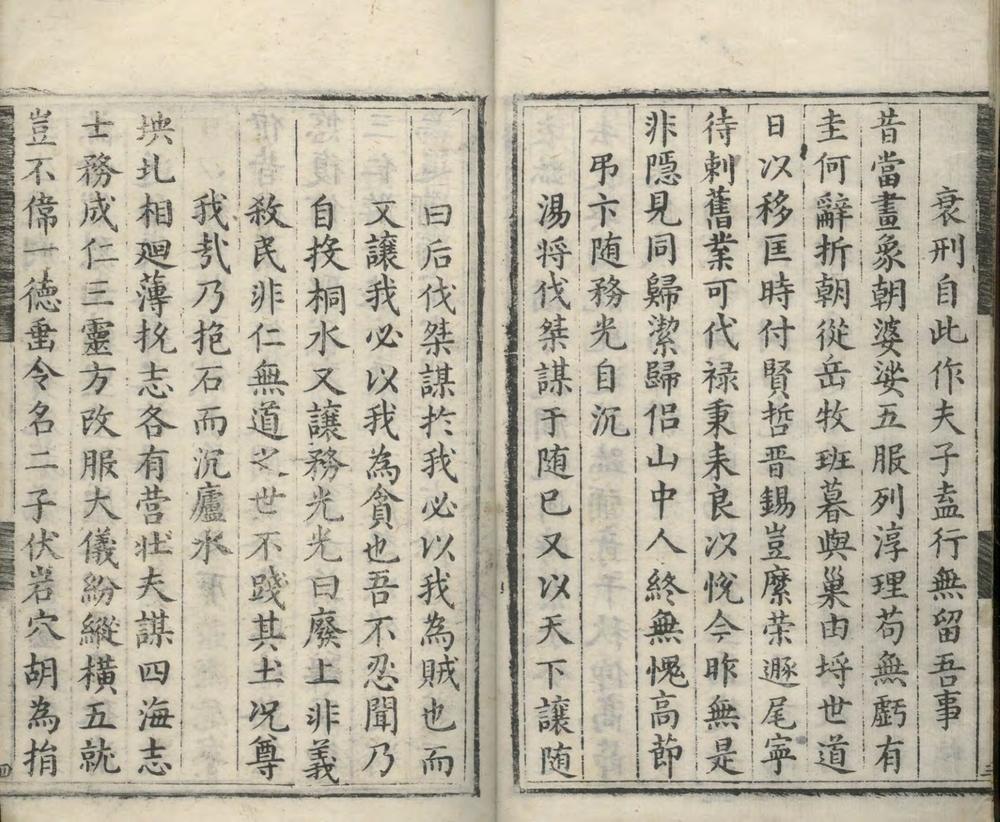 衰刑自此作夫子盍行無留吾事
昔當畫象朝婆娑五服列淳理苟無虧有
圭何辭折朝從岳牧班暮與巢由埒世道
日以移匡時付賢哲晋錫豈縻荣遯尾寧
待刺舊業可代禄秉耒良以悦今昨無是
非隱見同歸潔歸侣山中人終無愧高節
弔卞随務光自沉
湯将伐桀謀于随巳又以天下讓随
曰后伐桀謀扵我必以我為賊也而
又讓我必以我為貪也吾不忍聞乃
自投桐水又讓務光光曰廢上非義
殺民非仁無道之世不踐其土况尊
我㢤乃抱石而沉廬水
坱圠相廻薄抗志各有营壮夫謀四海志
士務成仁三靈方改服大儀紛縱橫五就
豈不偉一德垂令名二子伏岩穴胡為捐
三
四